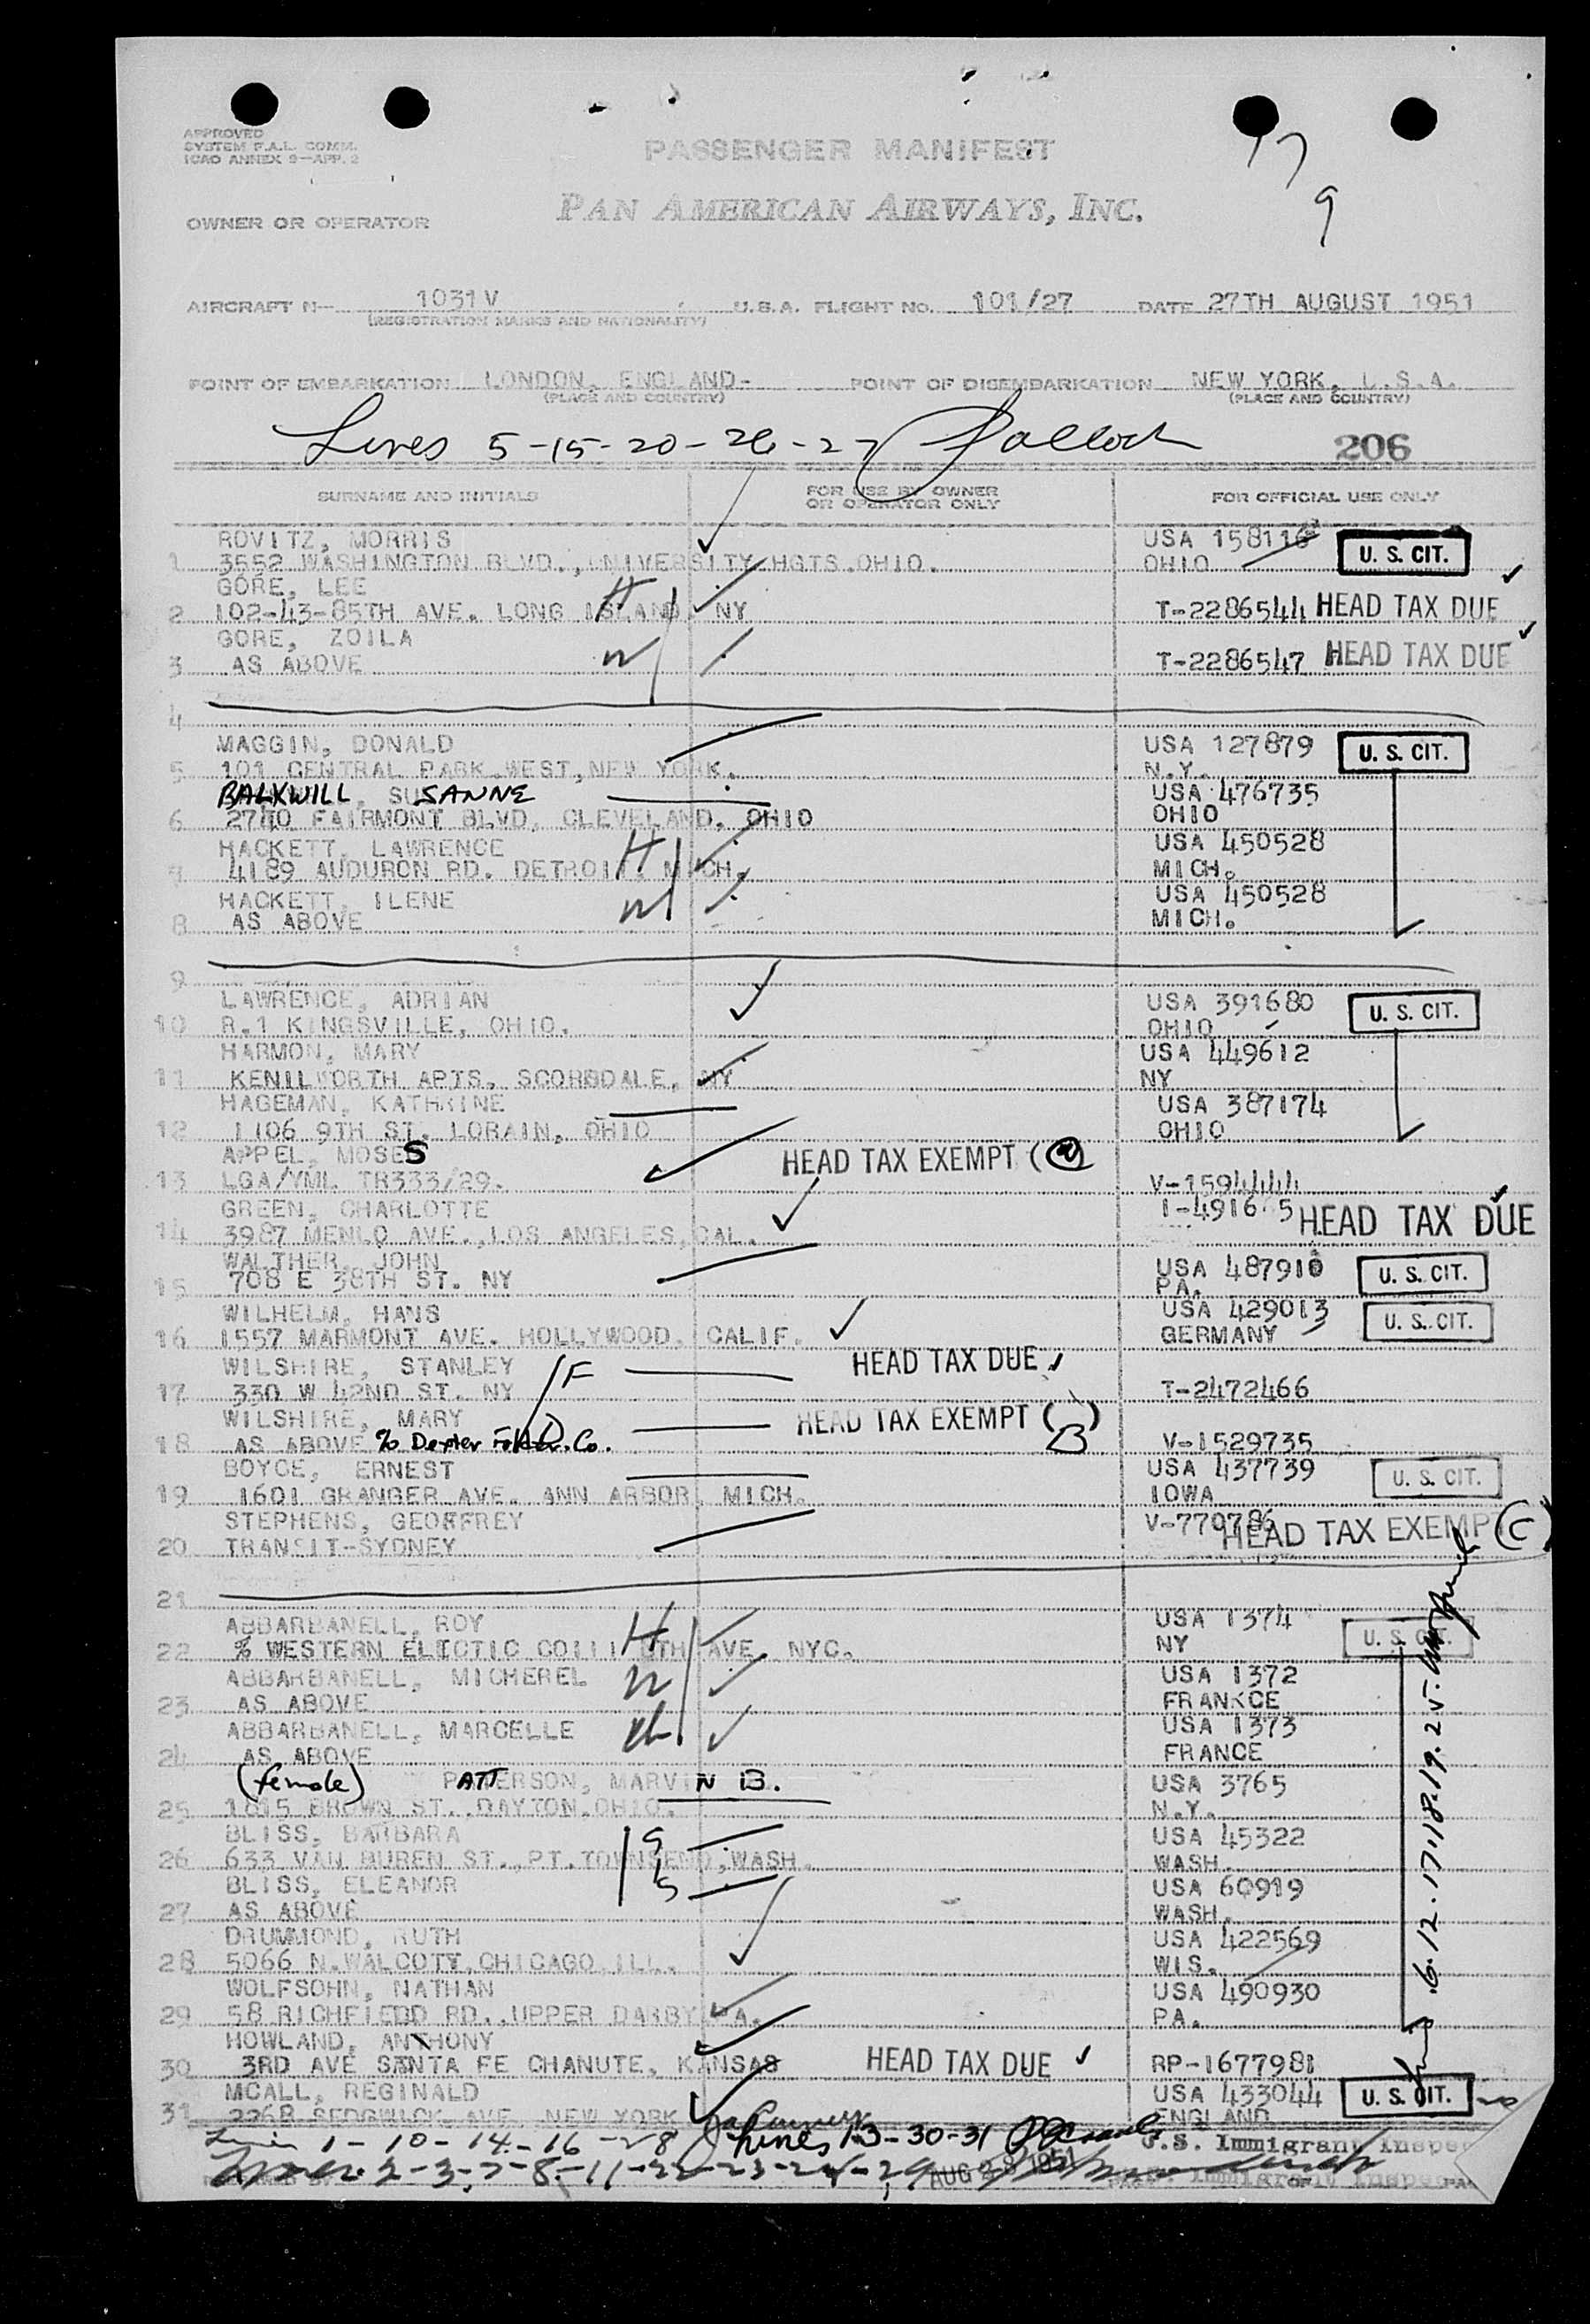 APPROVED
SYSTEM F.A.L. COMM.
ICAO ANNEX 9—APP. 2
PASSENGER MANIFEST
OWNER OR OPERATOR
PAN AMERICAN AIRWAYS, INC.
9
AIRCRAFT N— 1031V U.S.A. FLIGHT NO. 101/27 DATE 27TH AUGUST 1951
(REGISTRATION MARKS AND NATIONALITY)
POINT OF EMBARKATION LONDON, ENGLAND- POINT OF DISEMBARKATION NEW YORK, U.S.A.
(PLACE AND COUNTRY) (PLACE AND COUNTRY)
Lines 5-15-20-26-27 206
SURNAME AND INITIALS FOR USE BY OWNER OR OPERATOR ONLY FOR OFFICIAL USE ONLY
ROVITZ, MORRIS USA 158116
1 3552 WASHINGTON BLVD., UNIVERSITY HGTS.OHIO. OHIO U. S. CIT.
GORE, LEE H
2 102-43-85TH AVE. LONG ISLAND, NY T-2286544 HEAD TAX DUE
GORE, ZOILA
3 AS ABOVE W T-2286547 HEAD TAX DUE
4
MAGGIN, DONALD USA 127879 U. S. CIT.
5 101 CENTRAL PARK WEST, NEW YORK. N.Y.
BALKWILL, SUSANNE USA 476735
6 2740 FAIRMONT BLVD, CLEVELAND, OHIO OHIO
HACKETT, LAWRENCE H USA 450528
7 4189 AUDURON RD. DETROIT, MICH. MICH.
HACKETT, ILENE W USA 450528
8 AS ABOVE MICH.
9
LAWRENCE, ADRIAN USA 391680 U. S. CIT.
10 R.1 KINGSVILLE, OHIO. OHIO
HARMON, MARY USA 449612
11 KENILWORTH APTS. SCORSDALE, NY NY
HAGEMAN, KATHRINE USA 387174
12 1106 9TH ST. LORAIN, OHIO OHIO
APPEL, MOSES HEAD TAX EXEMPT
13 LGA/YML TR333/29. V-1594444
GREEN, CHARLOTTE HEAD TAX DUE
14 3987 MENLO AVE., LOS ANGELES, CAL.
WALTHER, JOHN USA 487910 U. S. CIT.
15 708 E 38TH ST. NY PA.
WILHELM, HANS USA 429013 U. S. CIT.
16 1557 MARMONT AVE. HOLLYWOOD, CALIF. GERMANY
WILSHIRE, STANLEY F HEAD TAX DUE
17 330 W 42ND ST. NY T-2472466
WILSHIRE, MARY D HEAD TAX EXEMPT (B)
18 AS ABOVE % Dexter Co. V-1529735
BOYCE, ERNEST USA 437739 U. S. CIT.
19 1601 GRANGER AVE. ANN ARBOR, MICH. IOWA
STEPHENS, GEOFFREY V-770786 HEAD TAX EXEMPT (C)
20 TRANSIT-SYDNEY
21
ABBARBANELL, ROY H USA 1374 U. S. CIT.
22 % WESTERN ELECTIC AVE. NYC. NY
ABBARBANELL, MICHEREL W USA 1372
23 AS ABOVE FRANKCE
ABBARBANELL, MARCELLE USA 1373
24 AS ABOVE FRANCE
(female) PATTERSON, MARVIN B. USA 3765
25 1815 BROWN ST., DAYTON, OHIO. N.Y.
BLISS, BARBARA USA 45322
26 633 VAN BUREN ST., PT. TOWNSEND, WASH. WASH.
BLISS, ELEANOR S USA 60919
27 AS ABOVE WASH.
DRUMMOND, RUTH USA 422569
28 5066 N. WALCOTT, CHICAGO, ILL. WIS.
WOLFSOHN, NATHAN USA 490930
29 58 RICHFIEDD RD., UPPER DARBY PA. PA.
HOWLAND, ANTHONY
30 3RD AVE SANTA FE CHANUTE, KANSAS HEAD TAX DUE RP-1677981
MCALL, REGINALD USA 433044 U. S. CIT.
31 2268 SEDGWICK AVE, NEW YORK ENGLAND
6.12.17.18.19.25.
1-10-14-16-28 Lines 13-30-31 U.S. Immigrant Inspec
2-3-7-8-11-22-23-24-29 AUG 28 1951 Immigrant Inspec